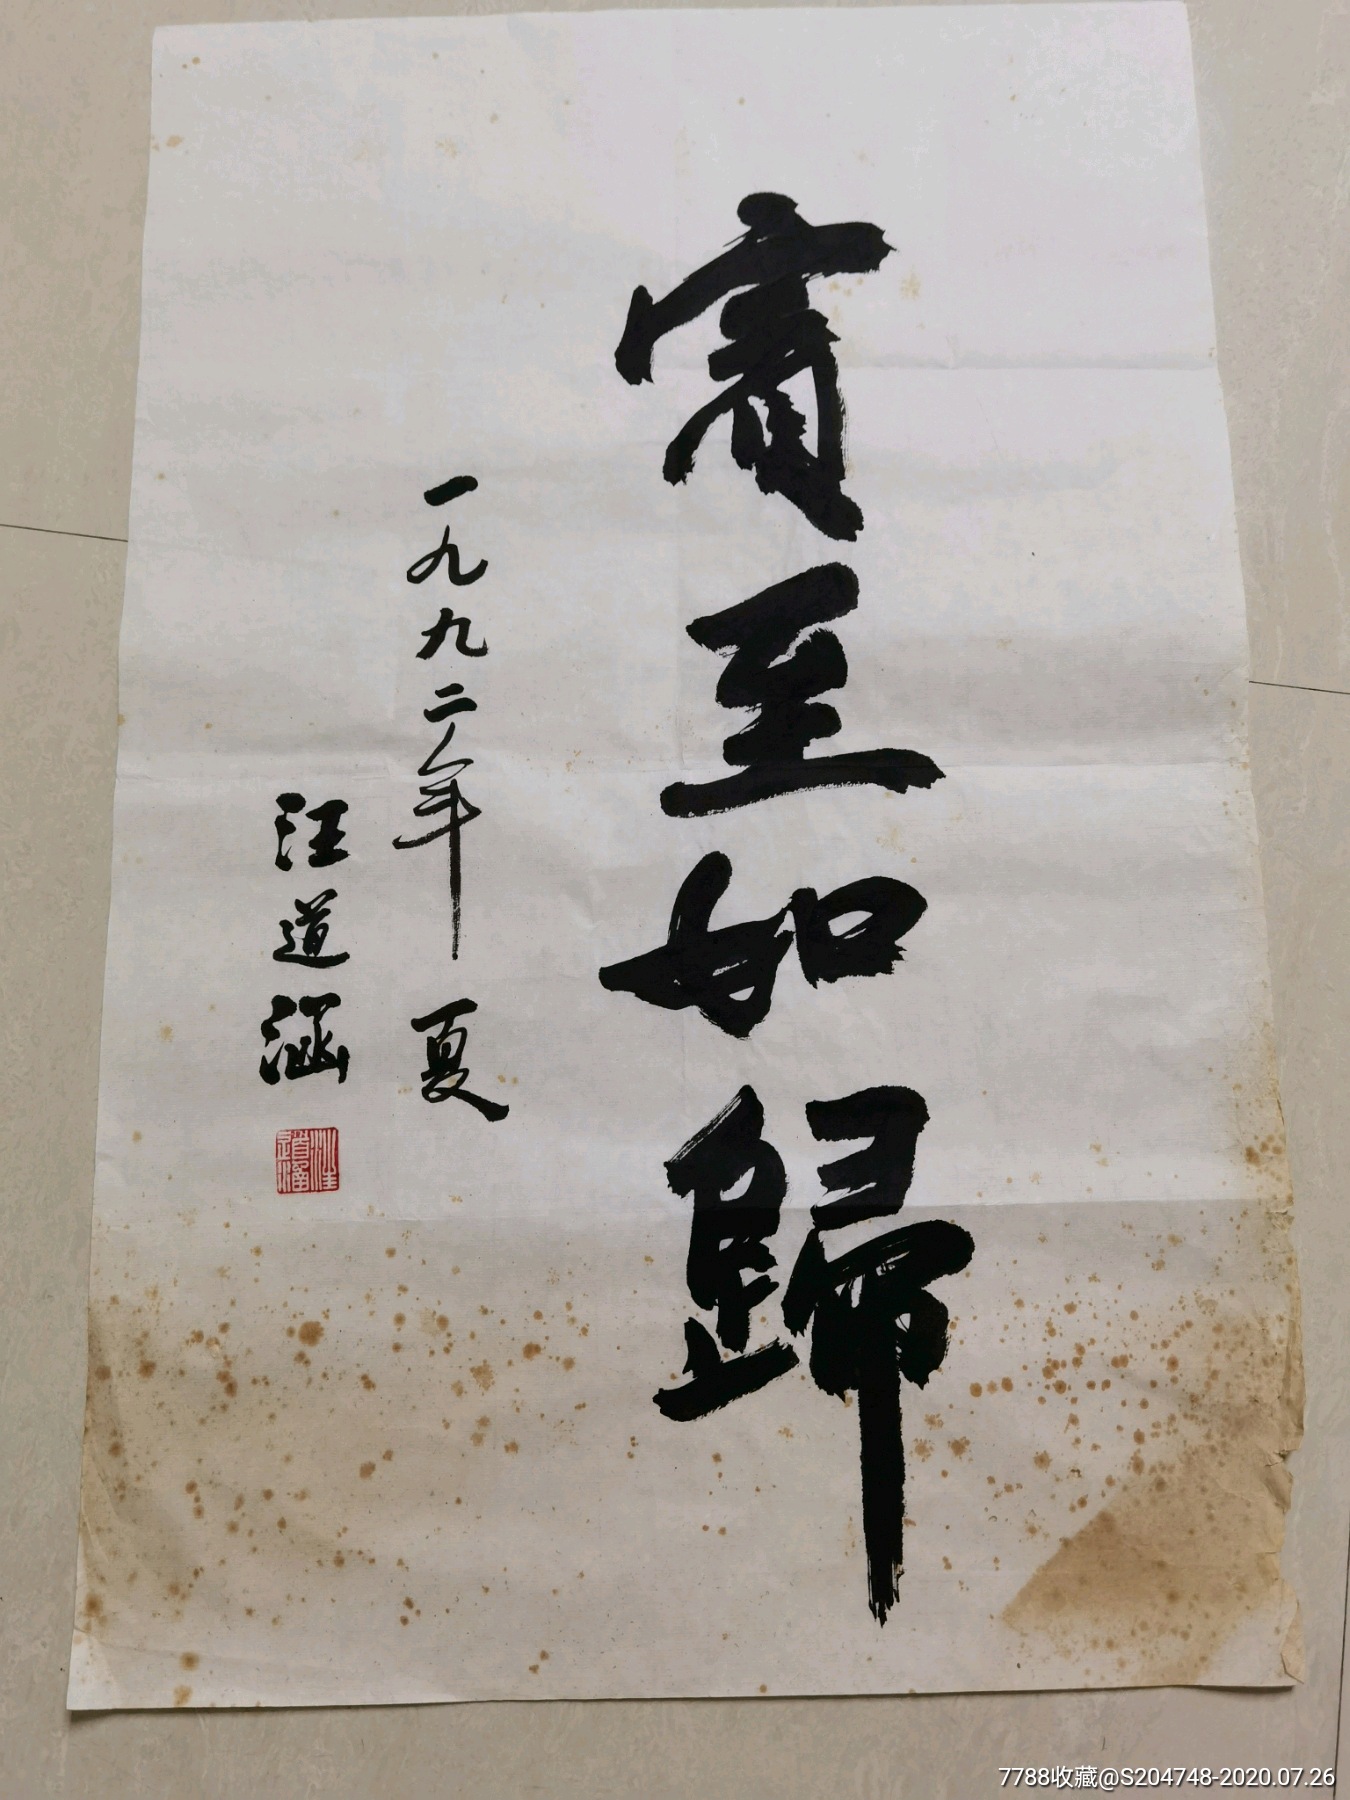 賓至如歸
一九九二年 夏
汪道涵
汪道涵
7788收藏@S204748-2020.07.26